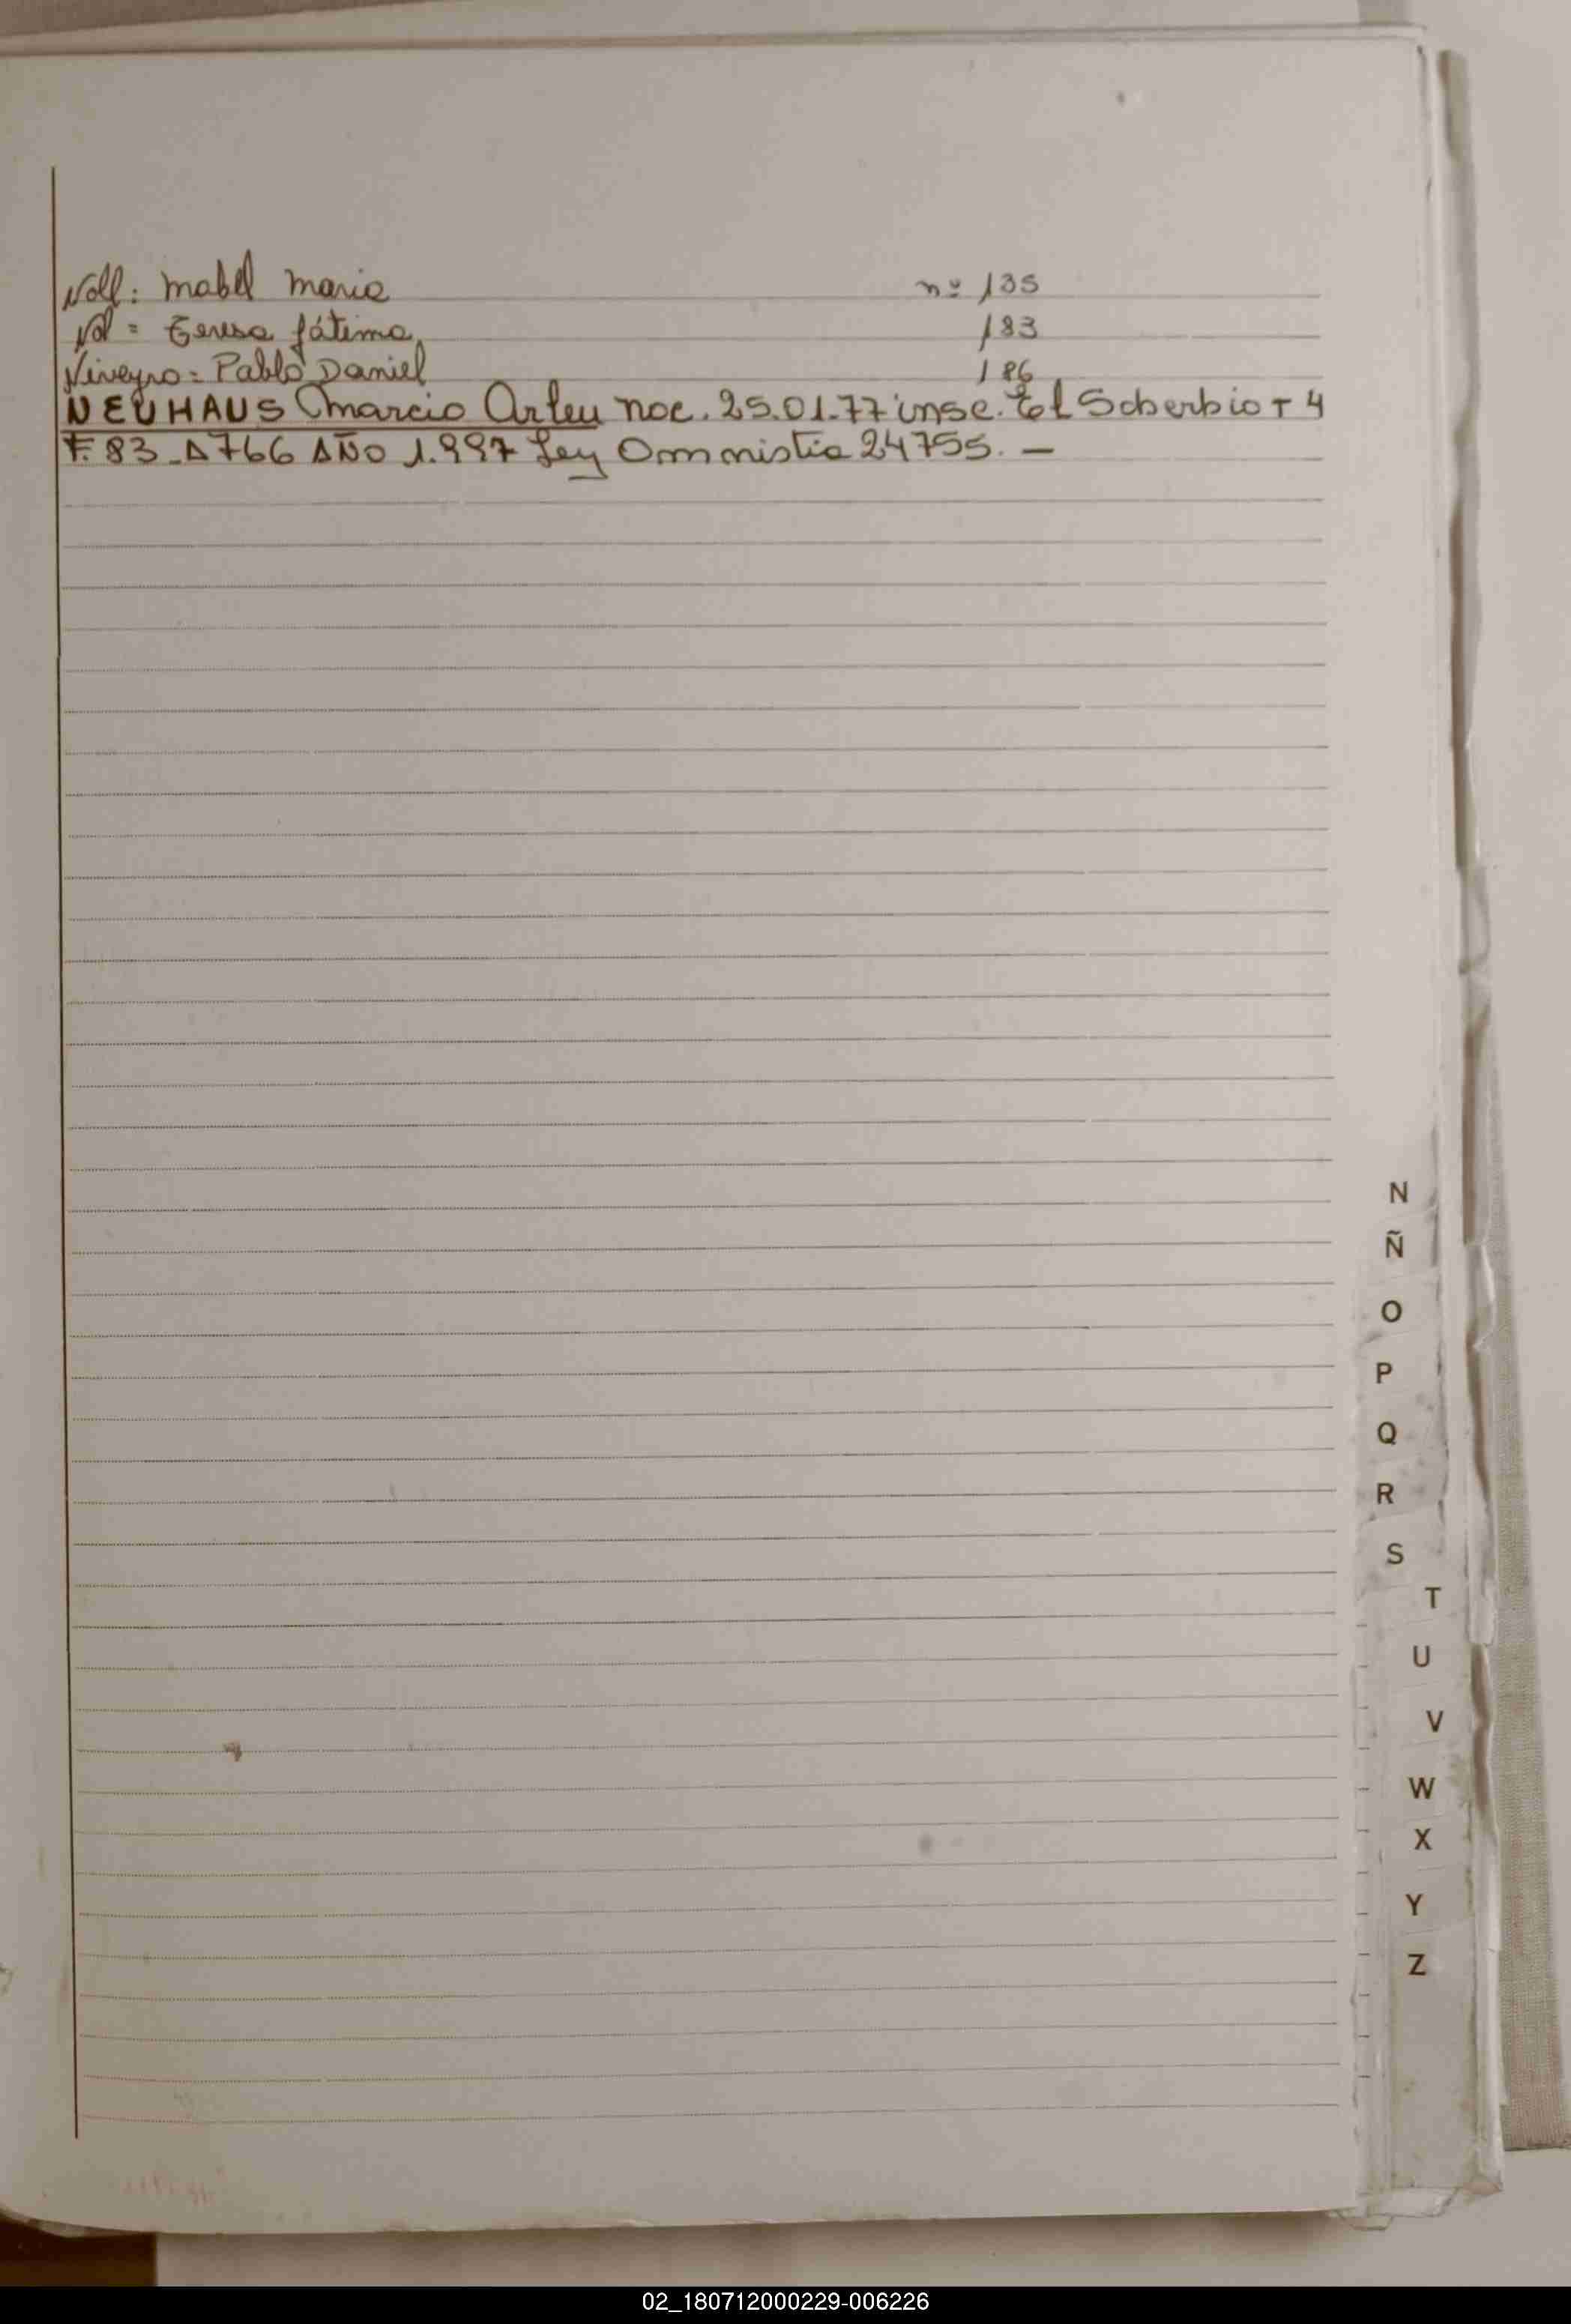 Noll: Mabel Maria nº 135
Nol = Teresa Fátima 183
Niveyro = Pablo Daniel 186
NEUHAUS Marcio Arleu nac. 25.01.77 insc. El Soberbio T 4
F. 83 - A 766 AÑO 1.997 Ley Ammistia 24755. —
N
Ñ
O
P
Q
R
S
T
U
V
W
X
Y
Z
02_180712000229-006226